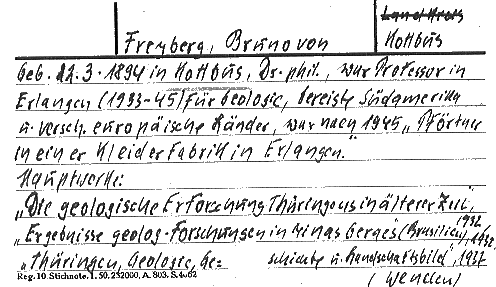 Landkreis
Freyberg, Bruno von
Kottbus
geb. 22.3.1894 in Kottbus, Dr. phil., war Professor in
Erlangen (1933-45) für Geologie, bereiste Südamerika
u. versch. europäische Länder, war nach 1945 "Pförtner
in einer Kleiderfabrik in Erlangen."
Hauptwerke:
"Die geologische Erforschung Thüringens in älterer Zeit", 1932,
"Ergebnisse geolog. Forschungen in Minas Geraes (Brasilien)", 1932,
"Thüringen, Geologie, Ge- schichte u. Landschaftsbild", 1937
Reg. 10 Stichnote. I. 50. 252000, A. 803. S.
(Wenden)